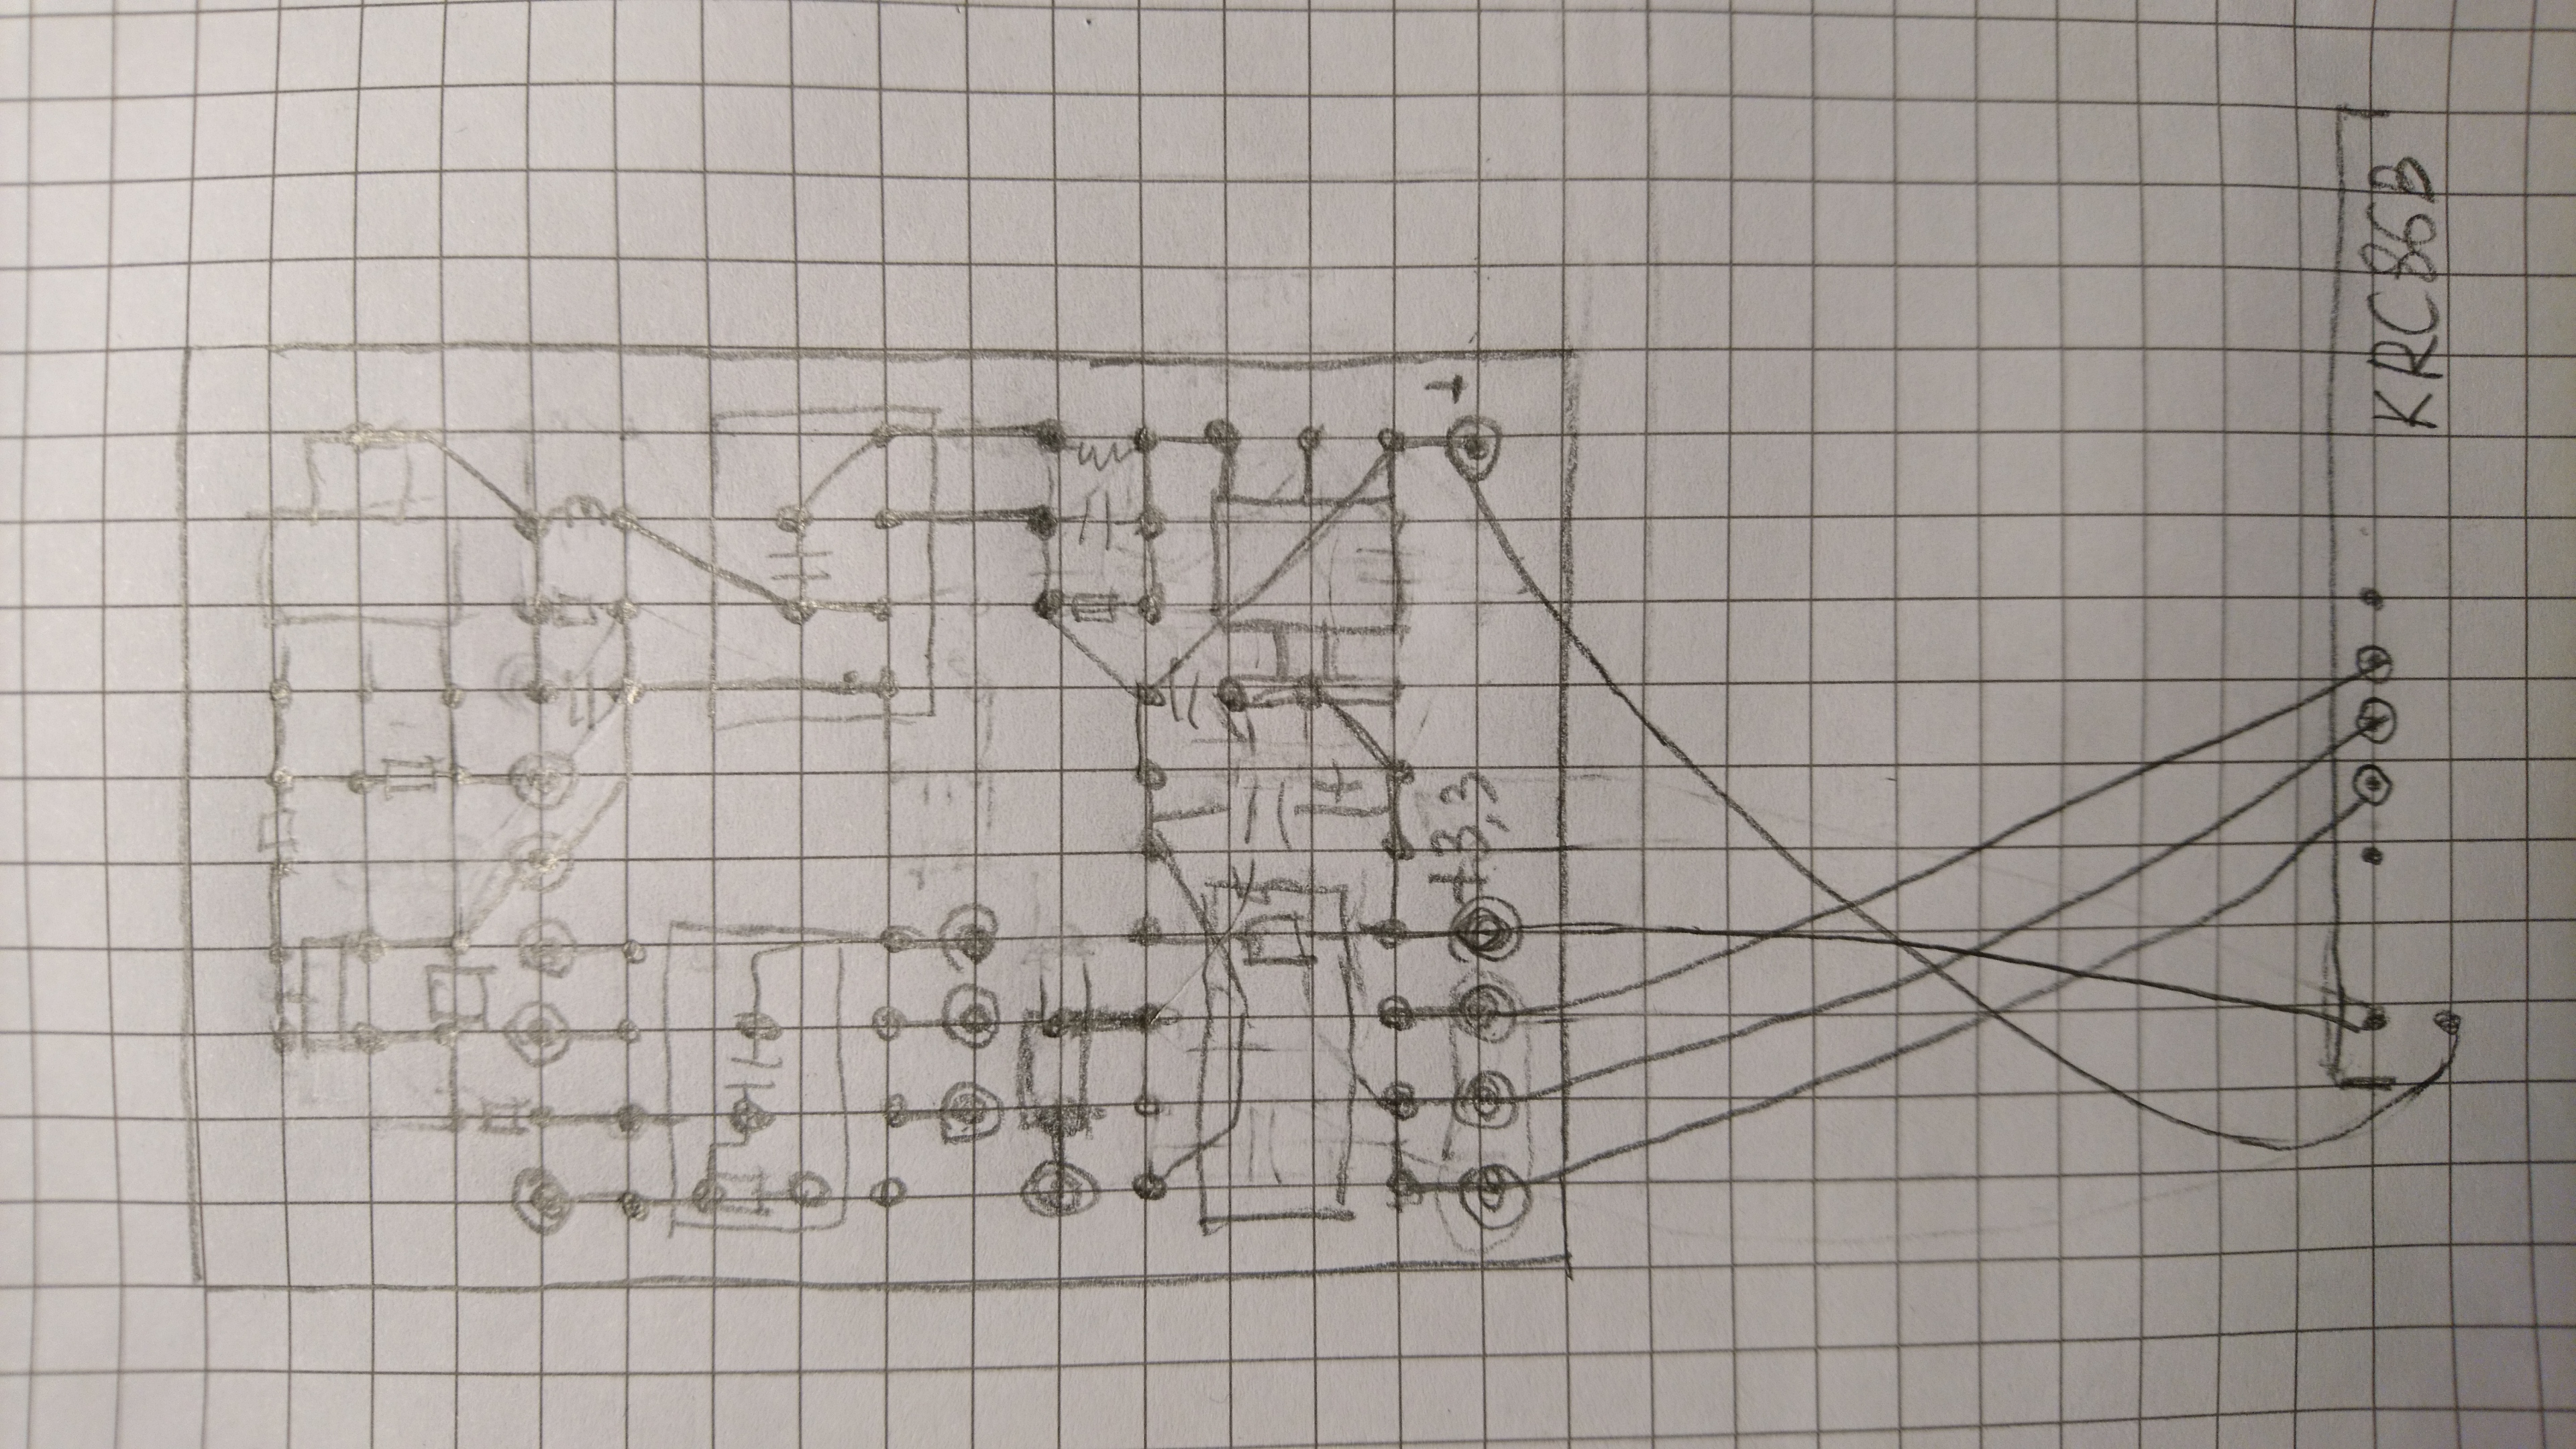 +3,3
+
KRC86B